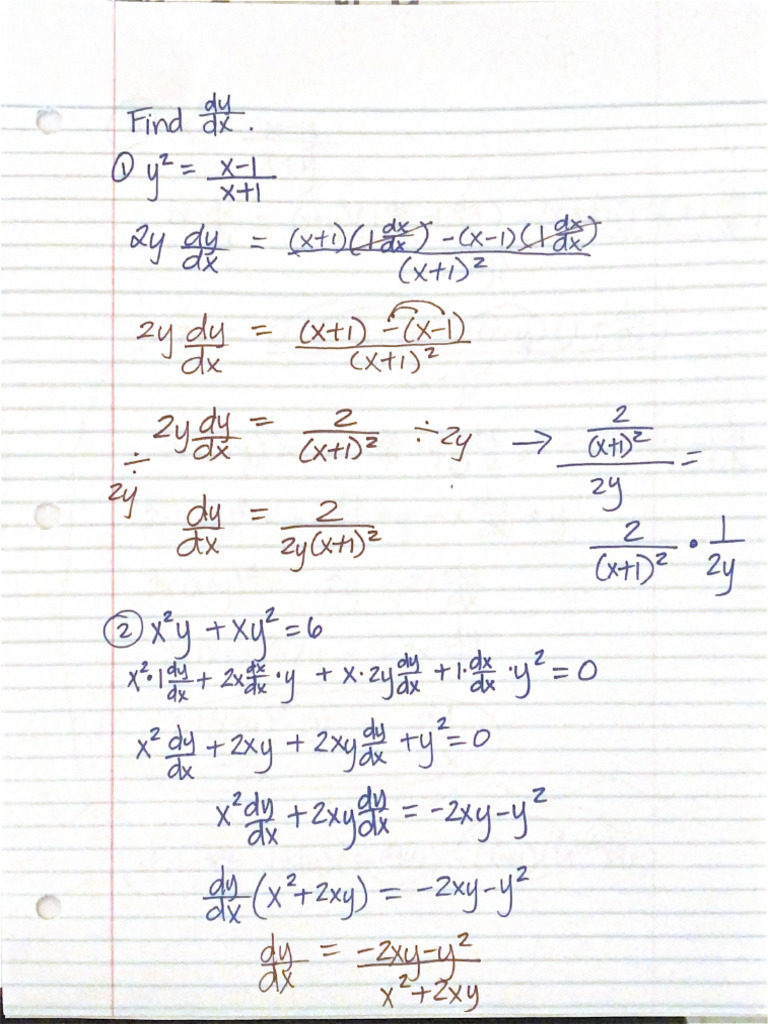 Find dy/dx.
① y² = (x-1)/(x+1)
2y dy/dx = ((x+1)(1 dx/dx) - (x-1)(1 dx/dx))/(x+1)²
2y dy/dx = ((x+1) - (x-1))/(x+1)²
÷2y 2y dy/dx = 2/(x+1)² ÷2y → (2/(x+1)²)/2y =
dy/dx = 2/(2y(x+1)²)
2/(x+1)² • 1/2y
② x²y + xy² = 6
x²·1 dy/dx + 2x dx/dx · y + x·2y dy/dx + 1· dx/dx · y² = 0
x² dy/dx + 2xy + 2xy dy/dx + y² = 0
x² dy/dx + 2xy dy/dx = -2xy - y²
dy/dx (x² + 2xy) = -2xy - y²
dy/dx = (-2xy - y²)/(x² + 2xy)